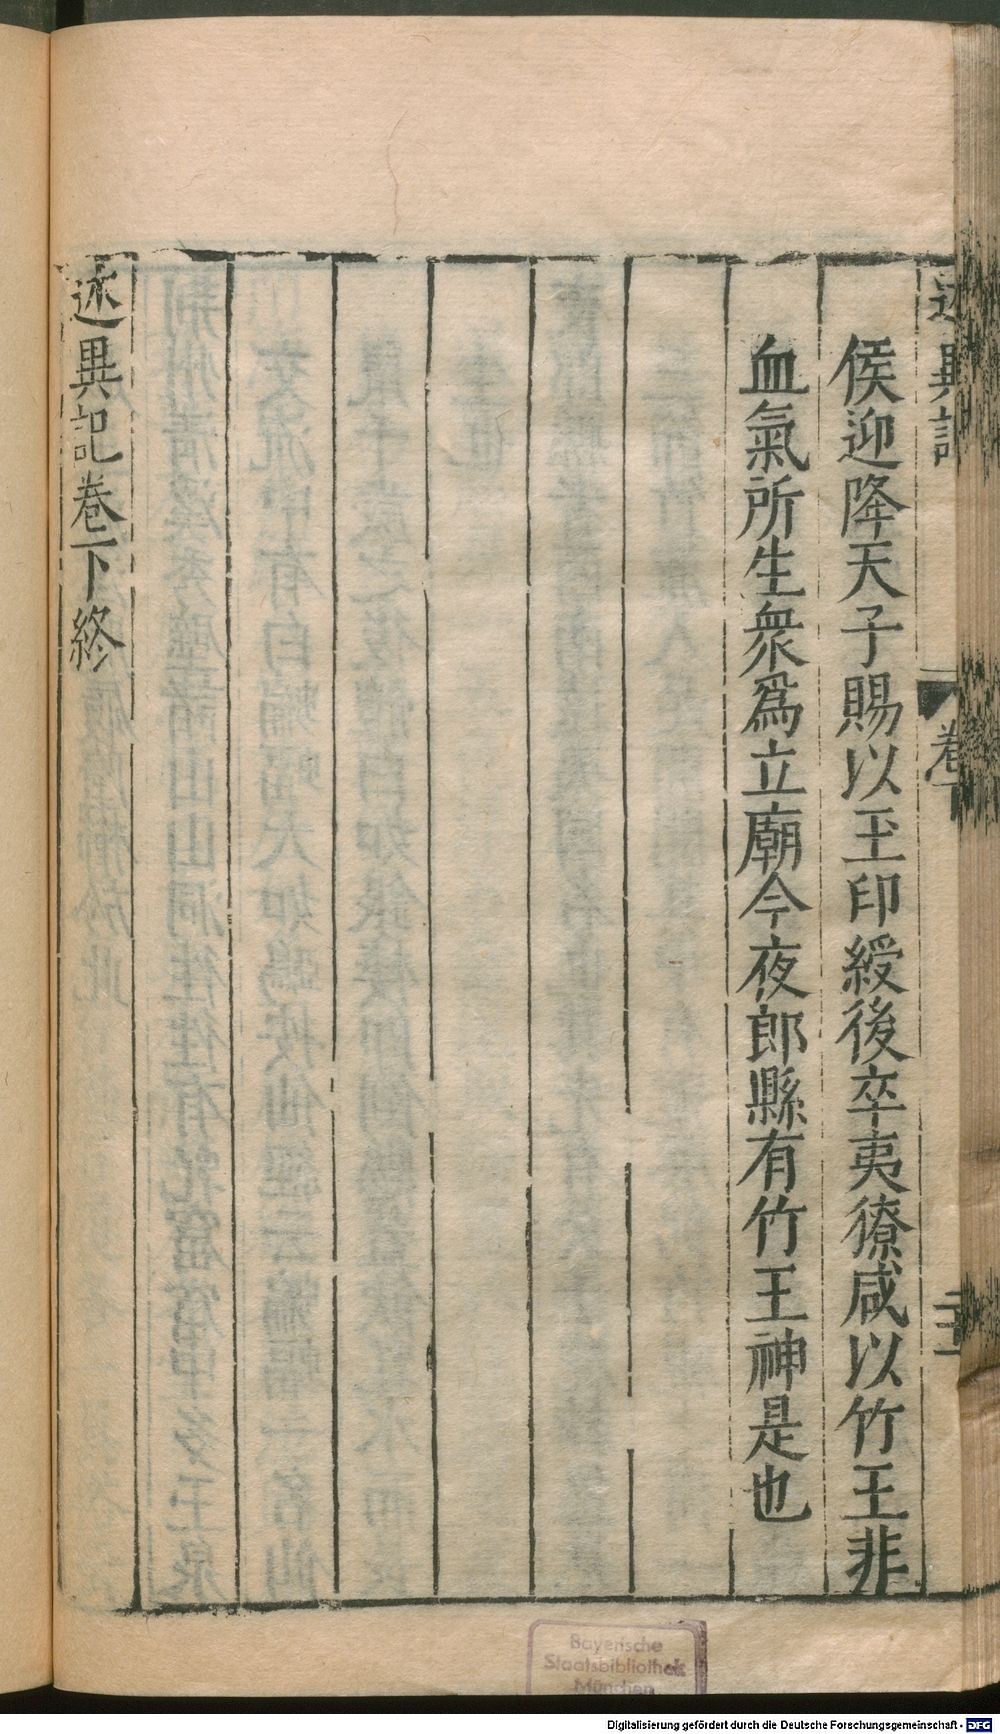 述異記
卷下
二十一
侯迎降天子賜以玉印綬後卒夷獠咸以竹王非
血氣所生衆爲立廟今夜郎縣有竹王神是也
述異記卷下終
Bayerische
Staatsbibliothek
München
Digitalisierung gefördert durch die Deutsche Forschungsgemeinschaft - DFG